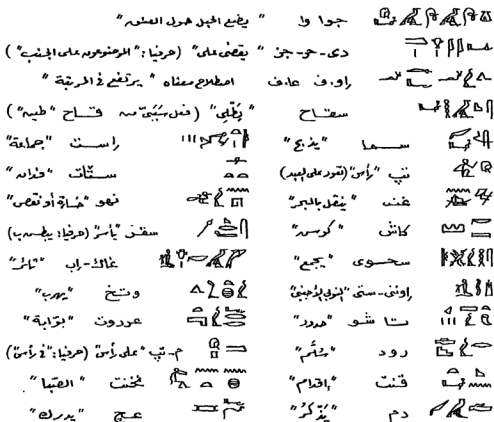 جوا وا "يضع الحبل حول العنق"
دى-حر-جز "يقضى على" (حرفيا: "الموضوعون على الجنب")
راو.ف عاف اصطلاح معناه "يرتفع فى المرتبة"
سقاح "يُطْلِى" (فعل سَبَبِىّ من قاح "طيه")
سما "يذبح" راست "جماعة"
تپ "رأس" (تعود على العبد) ستّات "فدان"
غنى "ينقل بالبحر" نهو "خسارة أو نقص"
كاش "كوش" سقر "يأسر" (حرفيا: يبطش ب)
سحوى "يجمع" خاك-اب "ثائر"
راونتى-ستى "النوبى الأجنبى" وتخ "يهرب"
تا شو "حدود" عرروت "بوّابة"
رود "سُلَّم" م-تپ "على رأس" (حرفيا: "فى رأس")
قنت "إقدام" نخنت "الصِّبا"
دم "يُذْكَرُ" عج "يدرك"